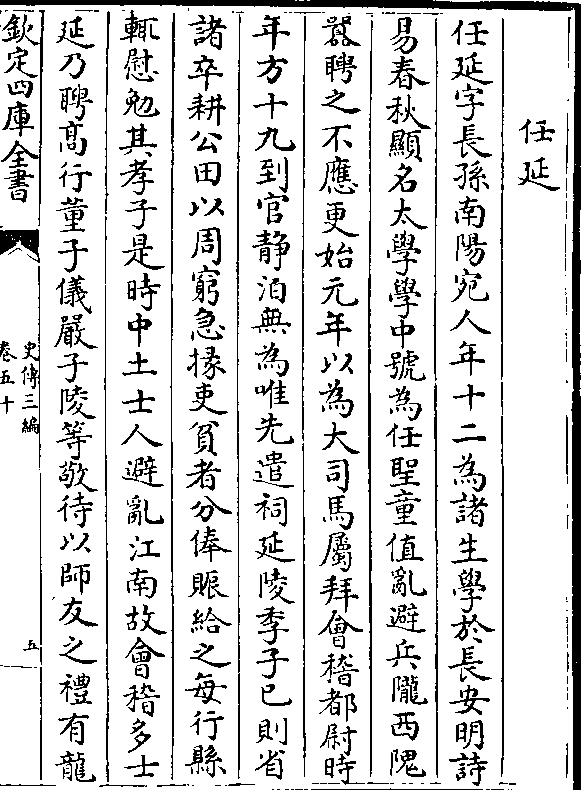 任延
任延字長孫南陽宛人年十二為諸生學於長安明詩
易春秋顯名太學學中號為任聖童值亂避兵隴西隗
囂聘之不應更始元年以為大司馬屬拜會稽都尉時
年方十九到官静泊無為唯先遣祠延陵季子已則省
諸卒耕公田以周窮急掾吏貧者分俸賑給之每行縣
輒慰勉其孝子是時中土士人避亂江南故會稽多士
延乃聘髙行董子儀嚴子陵等敬待以師友之禮有龍
欽定四庫全書
史傳三編
卷五十
五